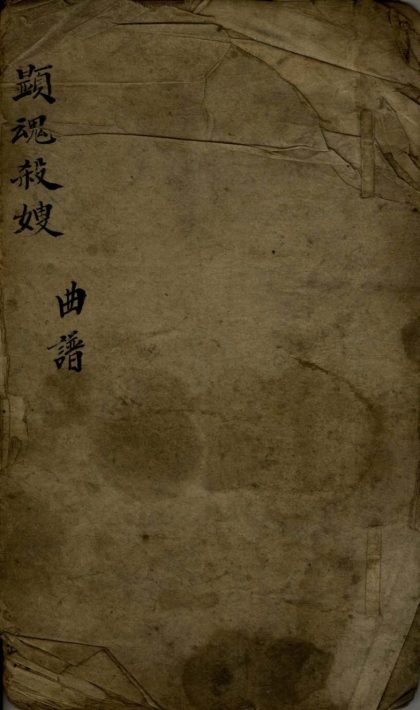 顯魂殺嫂
曲譜